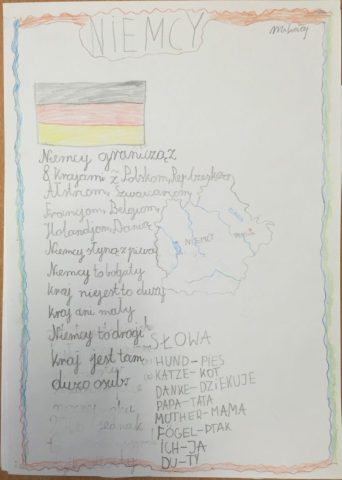 NIEMCY
Niemcy graniczą z
8 krajami z Polskom,
Austriom,
Francjom, Belgiom,
Holandjom, Daniom
Niemcy słyną z piwa
Niemcy to bogaty
kraj niejest to duży
kraj ani mały
Niemcy to drogi
kraj jest tam
dużo osub
NIEMCY
SŁOWA
HUND-PIES
KATZE-KOT
DANKE-DZIEKUJE
PAPA-TATA
MOTHER-MAMA
FOGEL-PTAK
ICH-JA
DU-TY